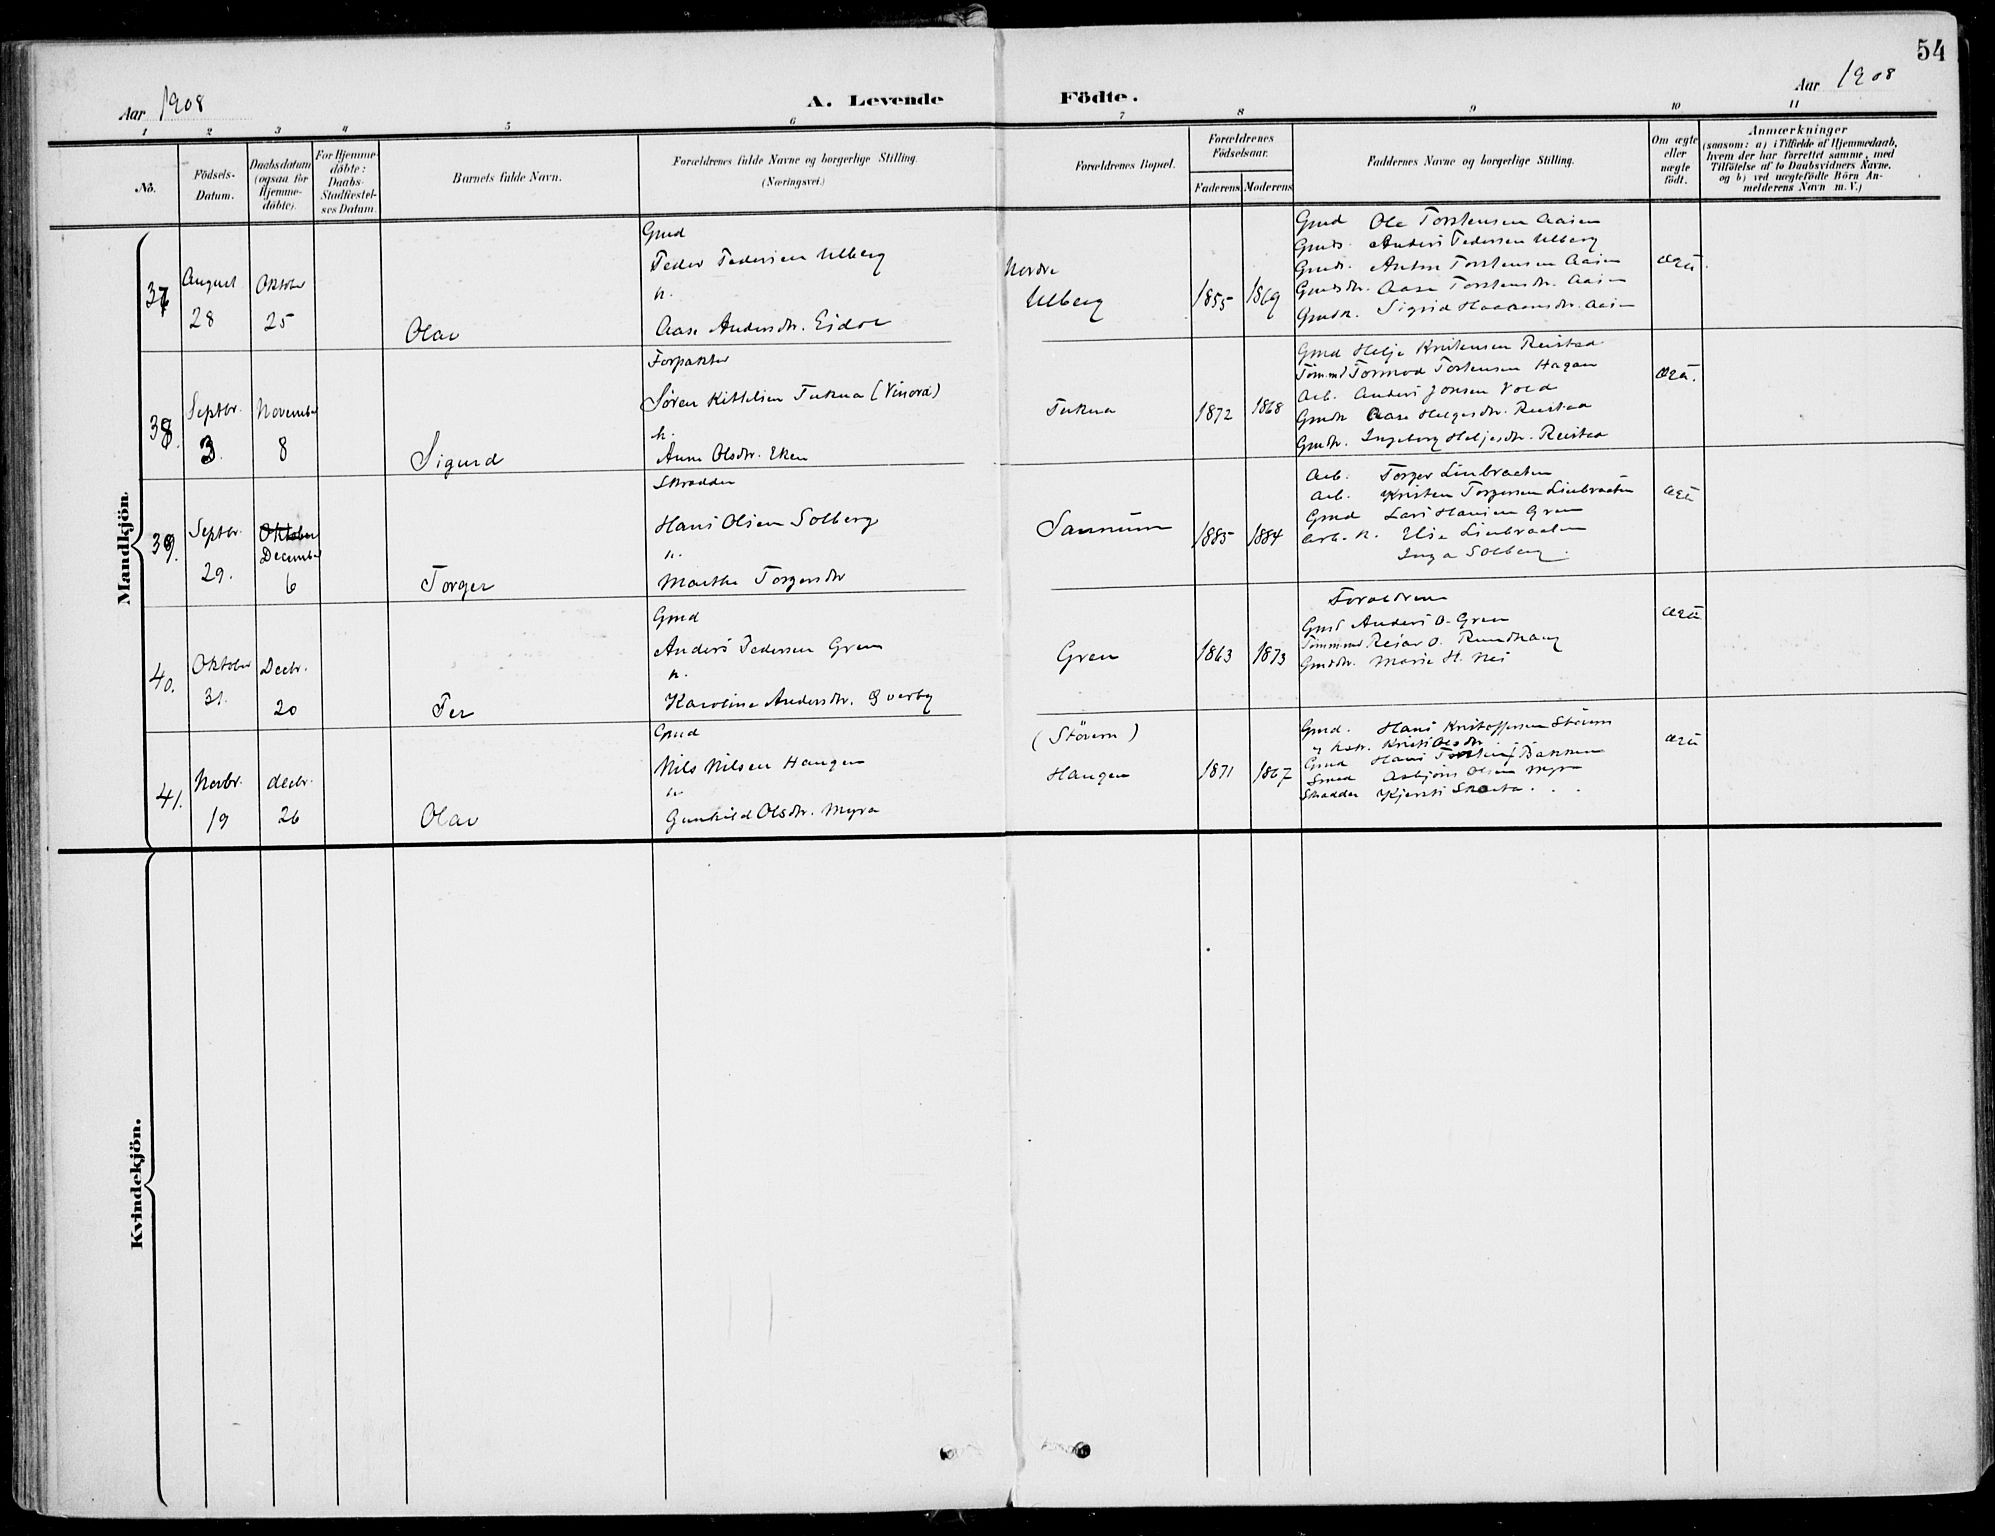 54
Aar 1908
A. Levende Födte.
Aar 1908
1 2 3 4 5 6 7 8 9 10 11
No.
Födsels-
Datum.
Daabsdatum
(ogsaa for
Hjemme-
döbte).
For Hjemme-
döbte:
Daabs-
Stadfæstel-
ses Datum.
Barnets fulde Navn.
Forældrenes fulde Navne og borgerlige Stilling.
(Næringsvei.)
Forældrenes Bopæl.
Forældrenes
Födselsaar.
Faderens Moderens
Faddernes Navne og borgerlige Stilling.
Om ægte
eller
uægte
födt.
Anmærkninger
(saasom: a) i Tilfælde af Hjemmedaab,
hvem der har forrettet samme, med
Tilföielse af to Daabsvidners Navne.
og b) ved uægtefödte Börn An-
melderens Navn m. V.)
Mandkjön.
37
August
28
Oktober
25
Olav
Gmd
Peder Pedersen Ulberg
h.
Aase Andersdtr. Eidal
Nordre
Ulberg
1855 1869
Gmd Ole Torstensen Aasen
Gmds. Anders Pedersen Ulberg
Gmds. Anton Torstensen Aasen
Gmdsdtr. Aase Torstensdtr. Aasen
Gmdk. Sigrid Haakensdtr. Aasen
ægte
38.
Septbr.
3.
November
8
Sigurd
Forpakter
Søren Kittelsen Tukua (Vinora)
h.
Anne Olsdtr. Eken
Tukua
1872 1868
Gmd Helje Kristensen Reistad
Tømmd Tormod Tostensen Hagan
Arb. Anders Jonsen Vold
Gmdk Aase Helgesdtr. Reistad
Gmdtr. Ingeborg Heljesdtr. Reistad
ægte.
39.
Septbr.
29.
Oktober
December
6
Torger
Skrædder
Hans Olsen Solberg
h.
Marthe Torgersdtr
Sannum
1885 1884
Arb. Torger Linbraaten
Arb. Kristen Torgersen Linbraaten
Gmd Lars Hansen Gren
Arb. k. Elise Linbraaten
Inga Solberg.
ægte
40.
Oktober
31.
Decbr.
20
Per
Gmd
Anders Pedersen Gren
h.
Karoline Andersdtr. Overby
Gren
1863 1873
Forældrene
Gmd Anders O. Gren
Tømmmd Reiar O. Rundhaug
Gmdsdtr. Marie H. Nes
ægte
41.
Novbr.
19
decbr.
26
Olav
Gmd
Nils Nilsen Haugen
h.
Gunhild Olsdtr. Myra
(Støvern)
Haugen
1871 1867
Gmd. Hans Kristoffersen Støvern
og hstr. Kristi Olsdtr
Gmd Hans Bakken
Smed Asbjørn Olsen Myra
Skrædder Kjersti
ægte
Kvindekjön.